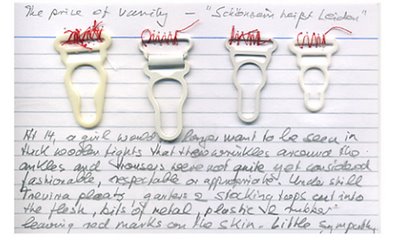 The price of vanity – "Schönsein heißt Leiden"
At 14, a girl would no longer want to be seen in
thick woolen tights that threw wrinkles around the
ankles and trousers were not quite yet considered
fashionable, respectable or appropriate. Under still
Trevira pleats garters & stocking tops cut into
the flesh, bits of metal, plastic & rubber
leaving red marks on the skin. Little sympathy